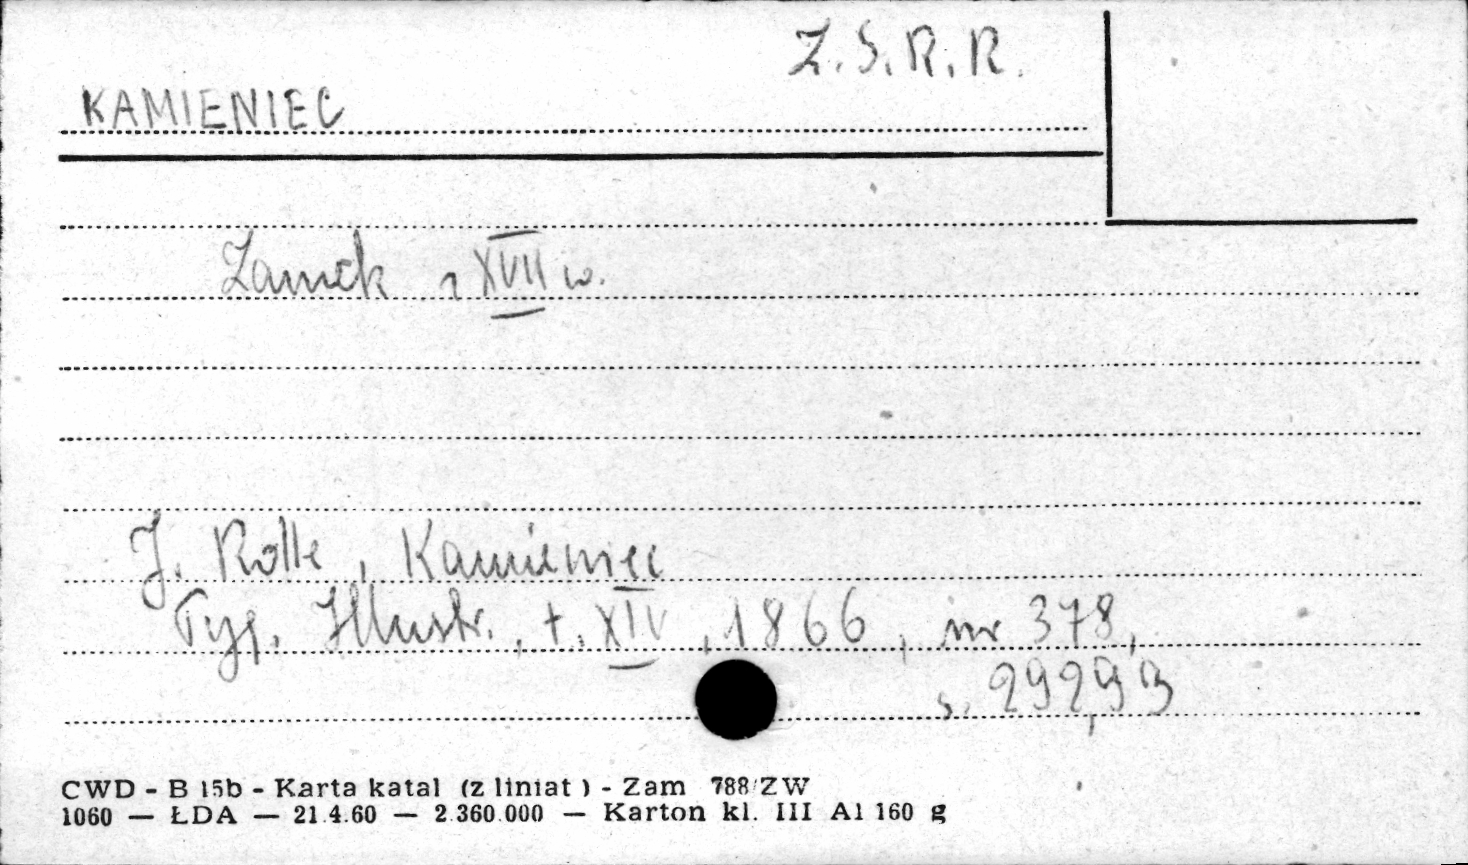 Z.S.R.R.
KAMIENIEC
Zamek z XVII w.
J. Rolle, Kamieniec
Tyg. Illustr., t. XIV, 1866, nr 378,
s. 292,93
CWD - B 15b - Karta katal (z liniat ) - Zam 788/ZW
1060 — ŁDA — 21.4.60 — 2.360.000 — Karton kl. III A1 160 g